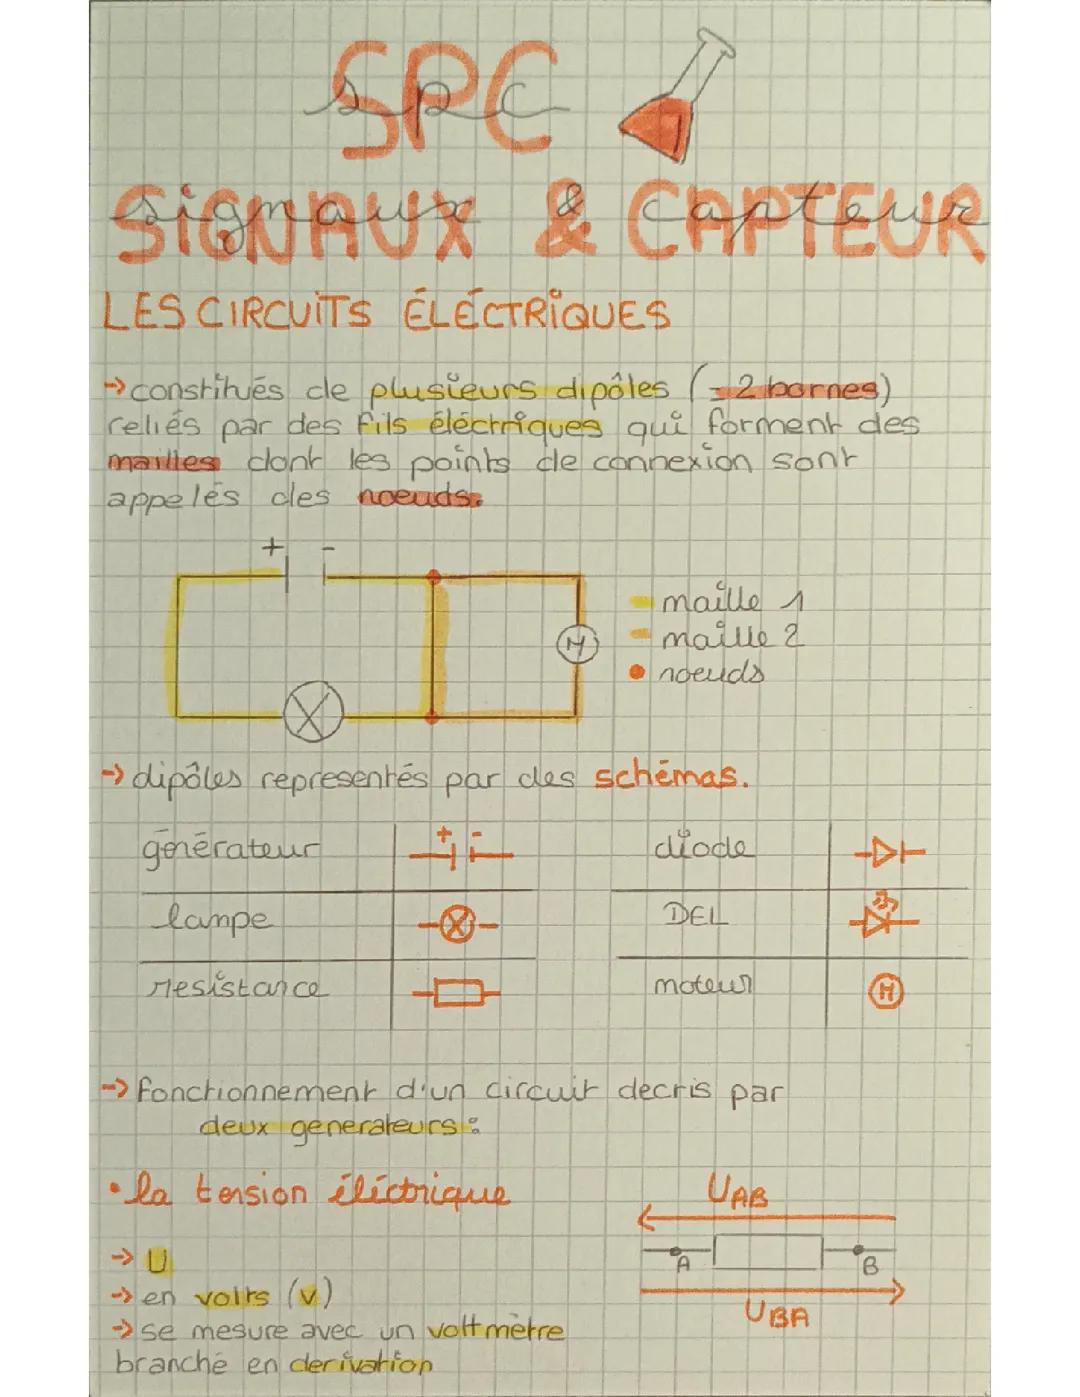 SPC
spc
SIGNAUX & CAPTEUR
signaux & capteur
LES CIRCUITS ÉLÉCTRIQUES
→ constitués de plusieurs dipôles (= 2 bornes)
reliés par des fils éléctriques qui forment des
mailles dont les points de connexion sont
appelés des noeuds.
+ -
M
maille 1
maille 2
noeuds
→ dipôles representés par des schémas.
générateur
+ -
diode
lampe
DEL
resistance
moteur
M
→ fonctionnement d'un circuit decris par
deux generateurs :
• la tension éléctrique
UAB
→ U
A
B
→ en volts (v)
UBA
→ se mesure avec un voltmètre
branché en derivation